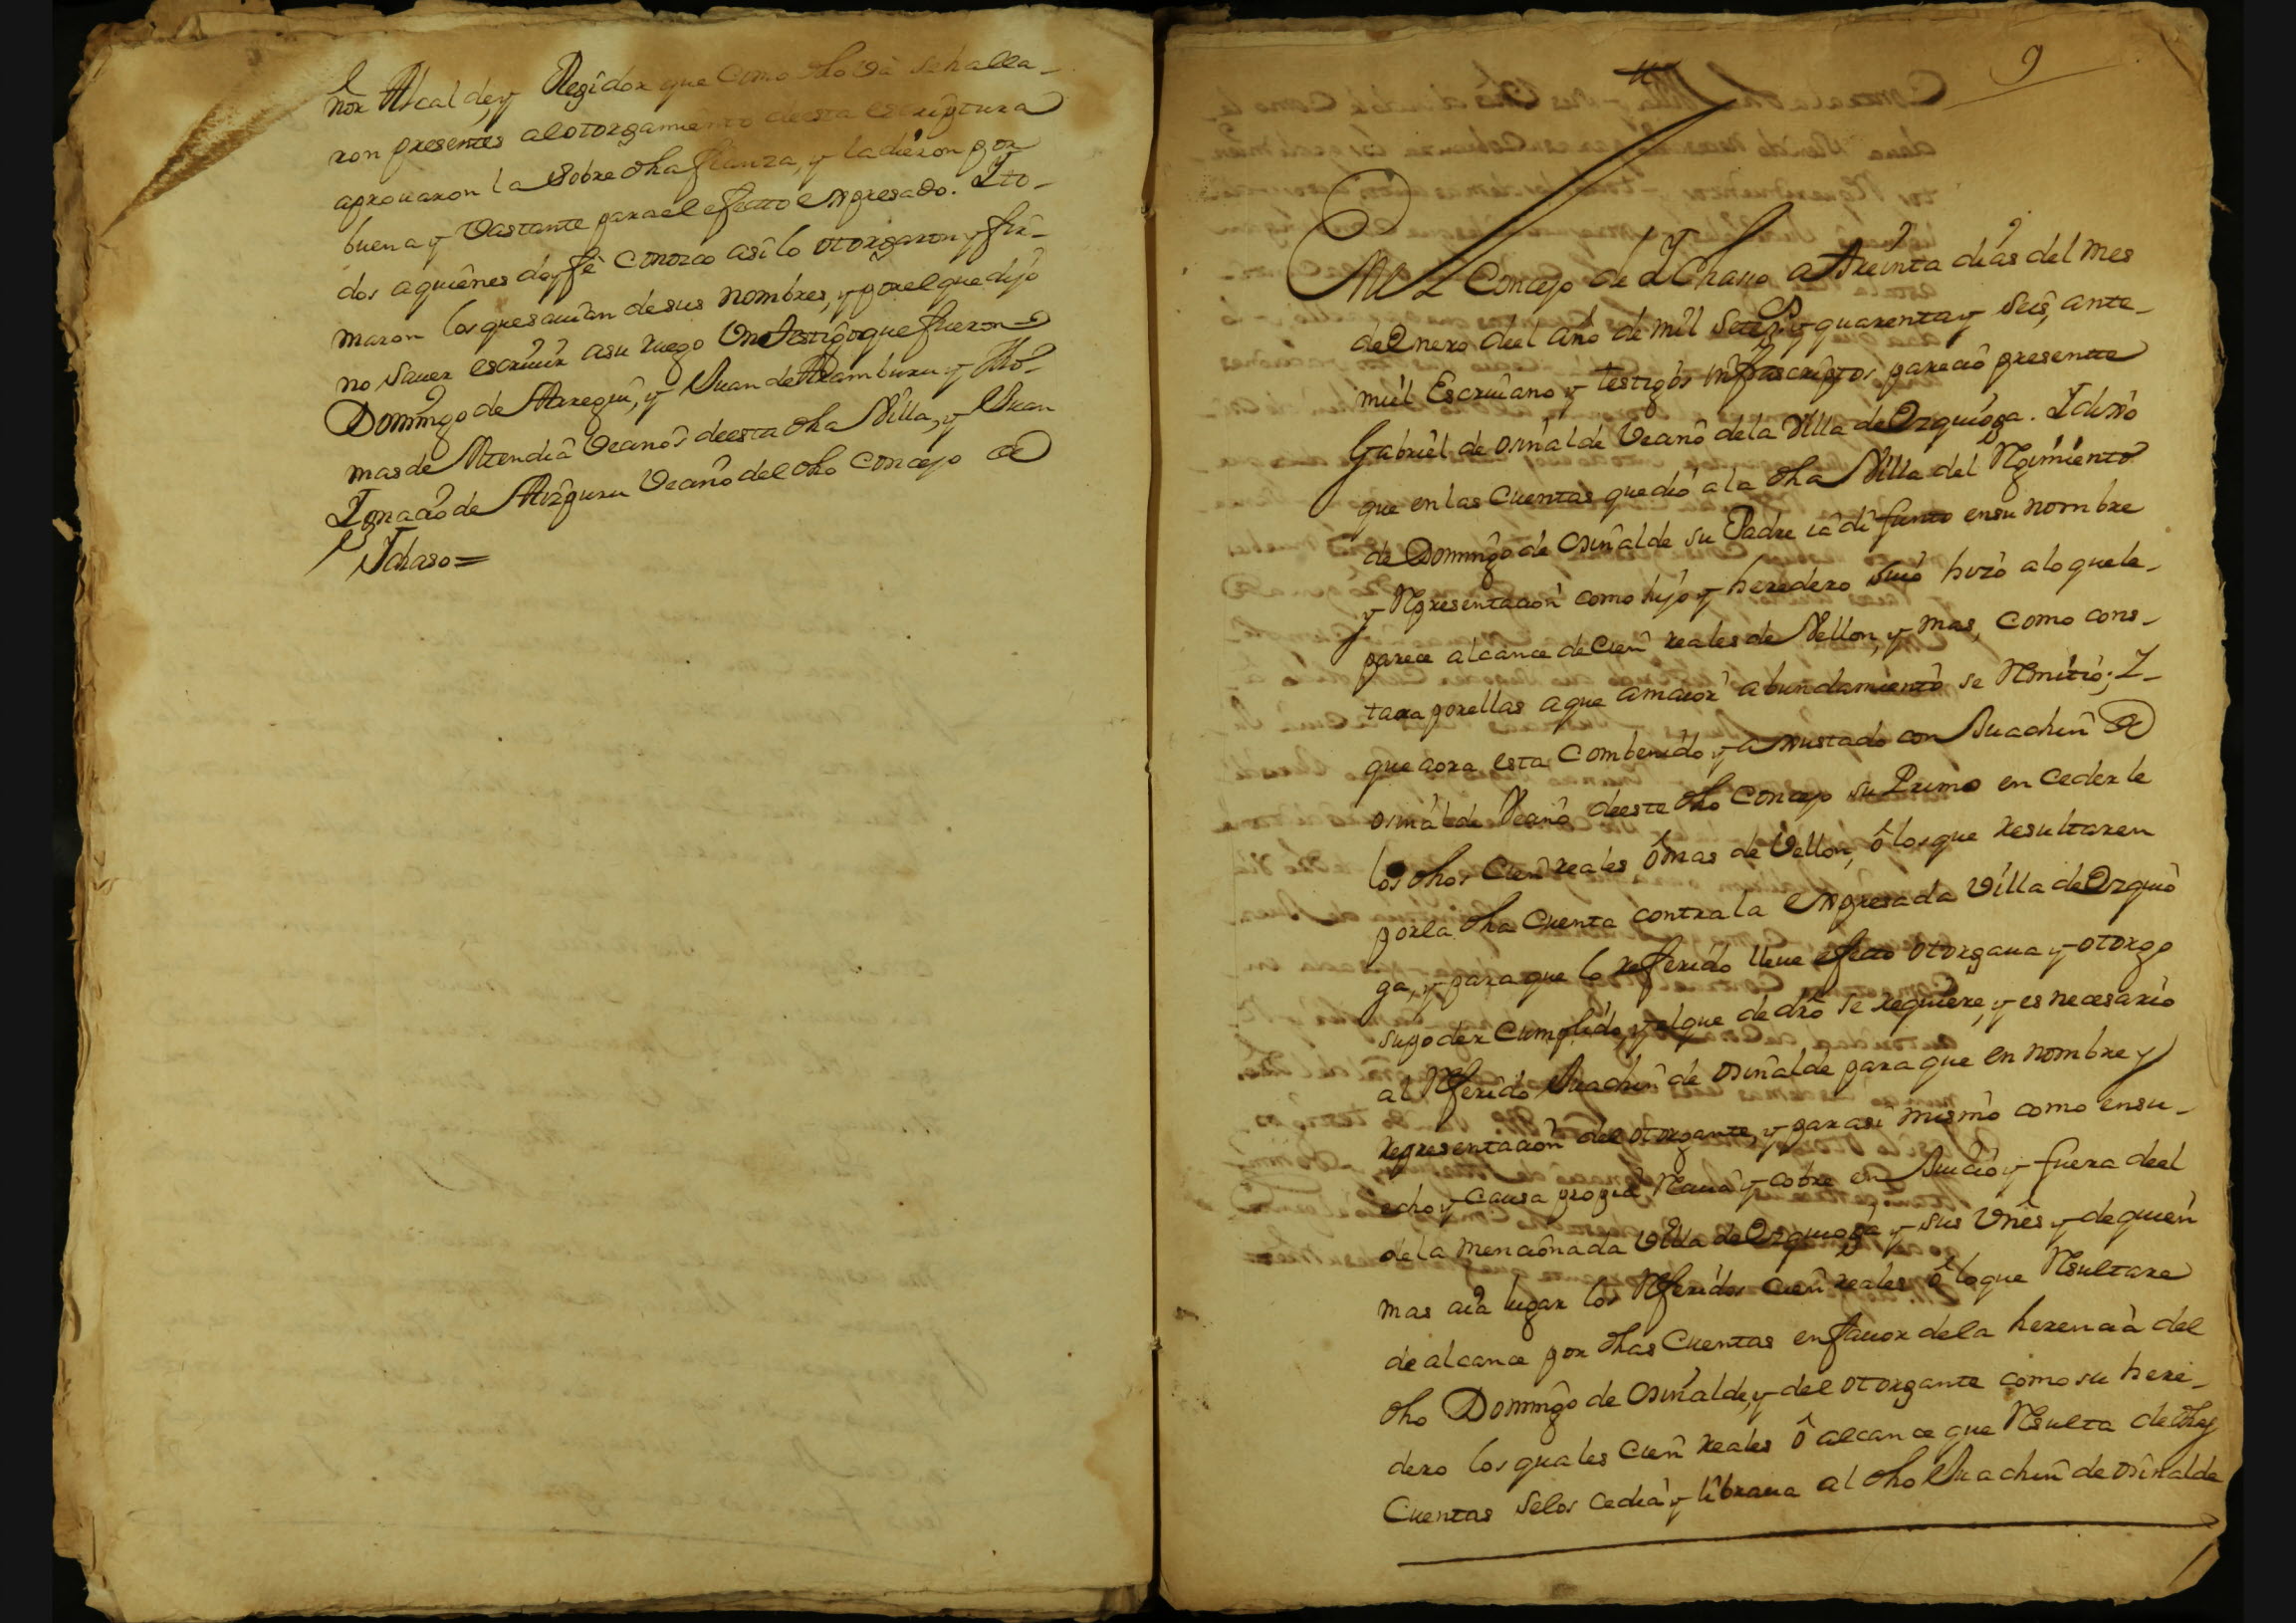 ñor Alcalde, y Regidor que como dho vâ se halla-
ron presentes al otorgamiento de esta escriptura
aprouaron la sobre dha fianza, y la dieron por
buena y vastante para el efectto expresado. Y to-
dos a quienes doy fê conozco asi lo otorgaron y fir-
maron los que sauian de sus nombres, y por el que dijo
no sauer escriuir a su ruego un testigo que fueron
Domingo de Arregui, y Juan de Aramburu y Tho-
mas de Atendia Vecanos de esta dha Villa, y Juan
Ignacio de Aizpuru Vecino del dho Concejo de
Ychaso =
9
En el Concejo de Ychaso a treinta dias del mes
de Enero de el año de mil setez.s y quarenta y seis, ante
mi el Escriuano y testigos infrascriptos parecio presente
Gabriel de Osinalde Vecino de la Villa de Ezquioga. I dixo
que en las cuentas que dio a la dha Villa del Regimiento
de Domingo de Osinalde su Padre ia difunto en su nombre
y Representacion como hijo y heredero suio hizo a lo que le
parece alcance de cien reales de Vellon, y mas, como cons-
tara por ellas a que a maior abundamiento se Remitio; I
que aora esta combenido y ajustado con Juachin de
Osinalde Vecino de este dho Concejo su Primo en cederle
los dhos cien reales ô mas de Vellon, ô los que resultaren
por la dha Cuenta contra la expresada Villa de Ezquio
ga, y para que lo referido lleue efecto otorgaua y otorgo
su poder cumplido, y el que de dro se requiere, y es necesario
al Referido Juachin de Osinalde para que en nombre y
representacion del otorgante, y para si mismo como en su
echo y causa propia Reciua y cobre en Juicio y fuera de el
de la mencionada Villa de Ezquioga y sus Vnês y de quien
mas aia lugar los Referidos cien reales ô lo que Resultare
de alcance por dhas Cuentas en fauor de la herencia del
dho Domingo de Osinalde, y del otorgante como su here-
dero los quales cien reales ô alcance que Resulta de dhas
Cuentas se los cedia y libraua al dho Juachin de Osinalde